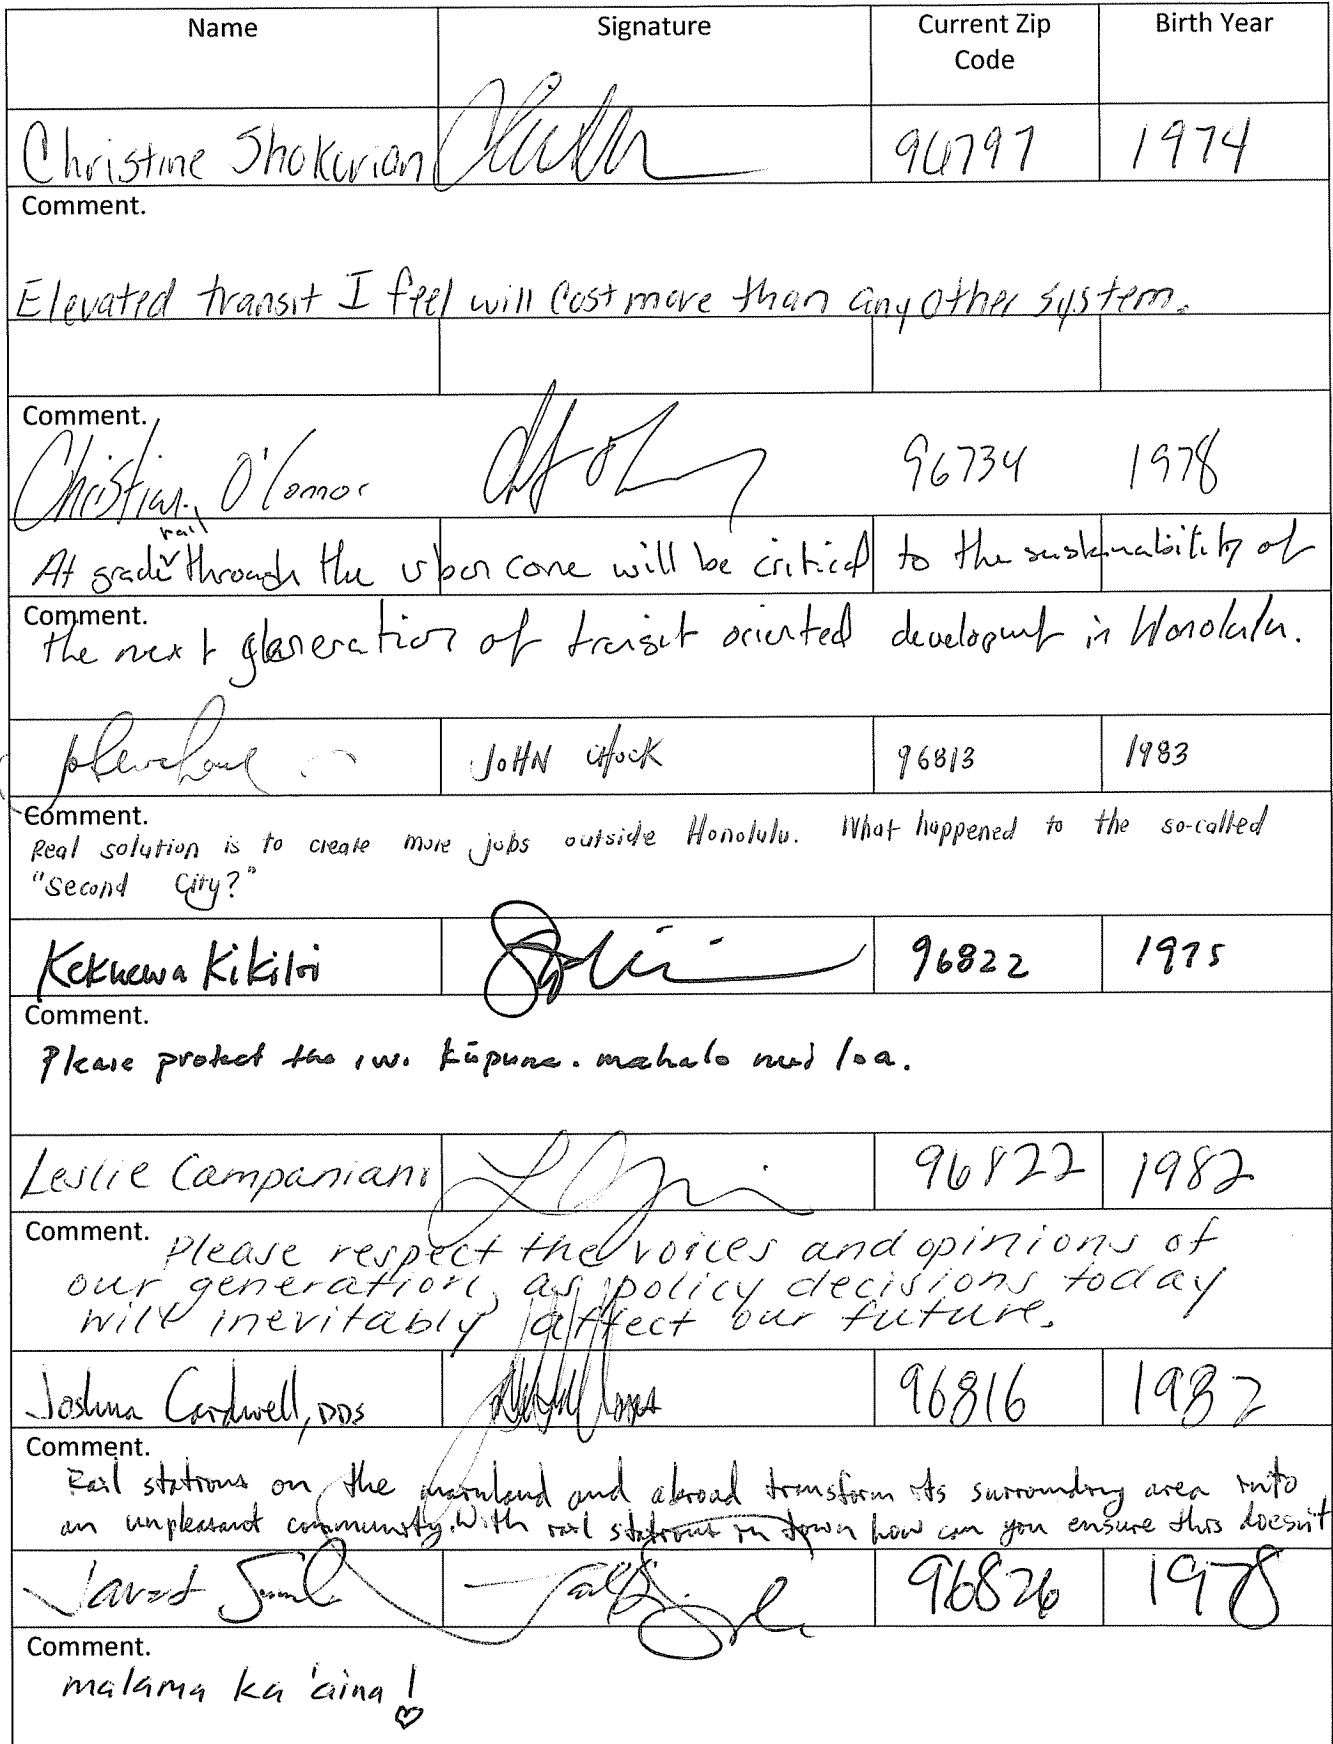 Name Signature Current Zip Code Birth Year
Christine Shokurian 96797 1974
Comment.
Elevated transit I feel will cost more than any other system.
Comment.
Christian O'Connor 96734 1978
At grade rail through the urban core will be critical to the sustainability of
Comment.
the next generation of transit oriented developmt in Honolulu.
JOHN 96813 1983
Comment.
Real solution is to create more jobs outside Honolulu. What happened to the so-called
"Second City?"
Kekuewa Kikiloi 96822 1975
Comment.
Please protect the iwi kūpuna. mahalo nui loa.
Leslie Campaniano 96822 1982
Comment. Please respect the voices and opinions of
our generation, as policy decisions today
will inevitably affect our future.
Joshua Cardwell, DDS 96816 1982
Comment.
Rail stations on the mainland and abroad transform its surrounding area into
an unpleasant community. With rail stations in town how can you ensure this doesn't
96826 1978
Comment.
malama ka 'aina!